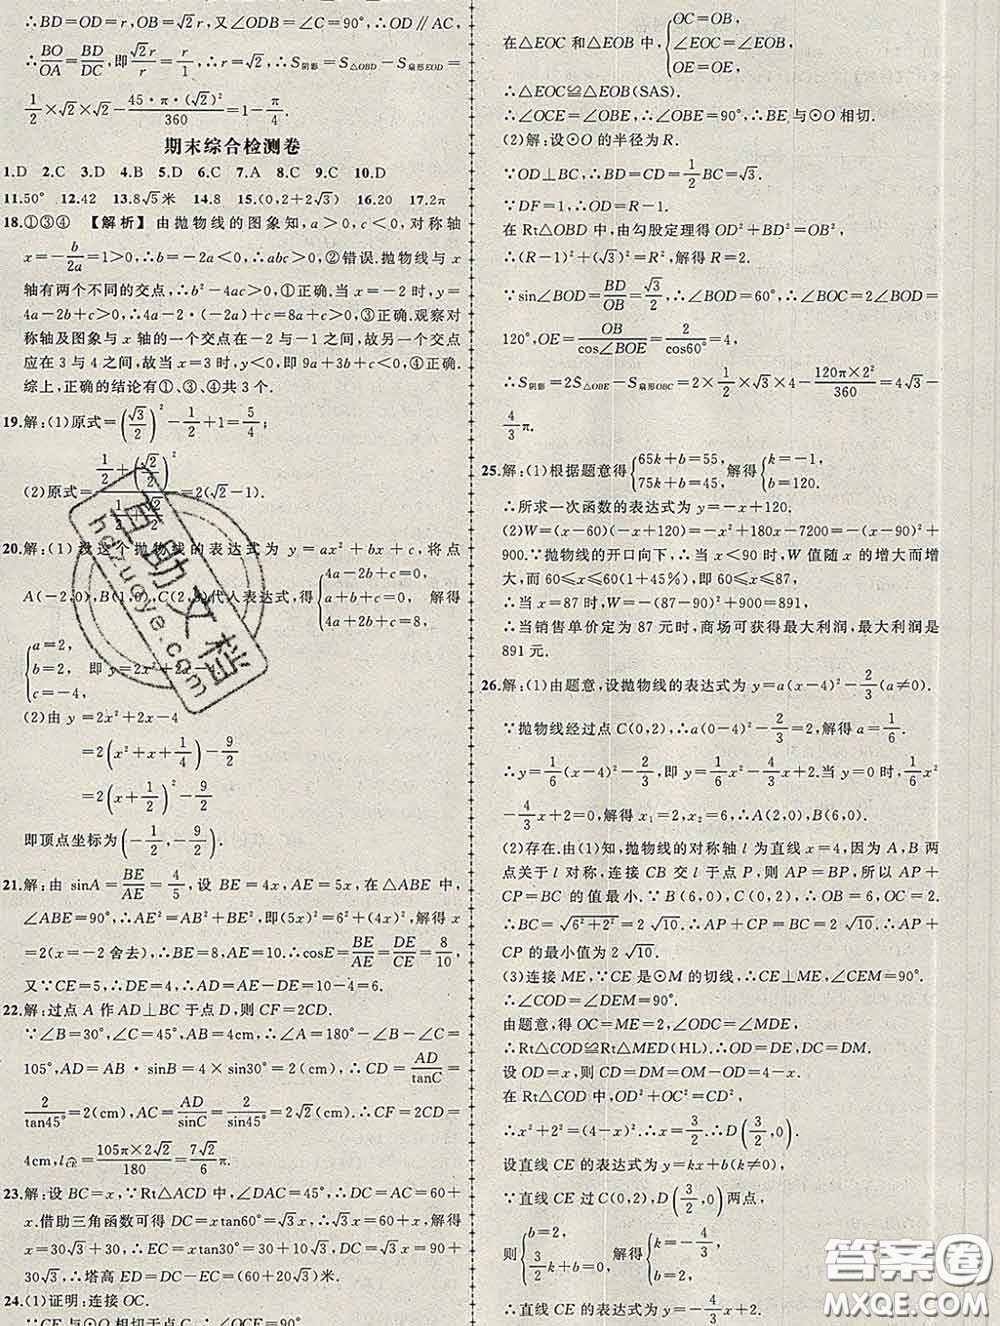 ∴BD=OD=r,OB=√2r,又∠ODB=∠C=90°,∴OD∥AC,
∴BO/OA=BD/DC,即√2r/r=r/1,∴r=√2,∴S阴影=S△OBD−S扇形EOD=
1/2×√2×√2−45·π·(√2)²/360=1−π/4.
期末综合检测卷
1.D 2.C 3.D 4.B 5.D 6.C 7.A 8.C 9.C 10.D
11.50° 12.42 13.8√5米 14.8 15.(0,2+2√3) 16.20 17.2π
18.①③④ 【解析】由抛物线的图象知,a>0,c<0,对称轴
x=−b/2a=1>0,∴b=−2a<0,∴abc>0,②错误.抛物线与x
轴有两个不同的交点,∴b²−4ac>0,①正确.当x=−2时,y=
4a−2b+c>0,∴4a−2·(−2a)+c=8a+c>0,③正确.观察对
称轴及图象与x轴的一个交点在−2与−1之间,故另一个交点
应在3与4之间,故当x=3时,y<0,即9a+3b+c<0,④正确.
综上,正确的结论有①、③、④共3个.
19.解:(1)原式=(√3/2)²−1/2+1=5/4;
(2)原式=
=2(√2−1).
20.解:(1)设这个抛物线的表达式为y=ax²+bx+c,将点
A(−2,0),B(1,0),C(2,8)代入表达式,得{4a−2b+c=0, a+b+c=0, 4a+2b+c=8, 解得
{a=2, b=2, c=−4, 即y=2x²+2x−4.
(2)由y=2x²+2x−4
=2(x²+x+1/4)−9/2
=2(x+1/2)²−9/2
即顶点坐标为(−1/2,−9/2).
21.解:由sinA=BE/AE=4/5,设BE=4x,AE=5x,在△ABE中,
∠ABE=90°,∴AE²=AB²+BE²,即(5x)²=6²+(4x)²,解得x
=2(x=−2舍去);∴BE=8,AE=10.∴cosE=BE/AE=DE/CE=8/10,
又∵CE=5,∴DE=4,∴AD=AE−DE=10−4=6.
22.解:过点A作AD⊥BC于点D,则CF=2CD.
∵∠B=30°,∠C=45°,AB=4cm,∴∠A=180°−∠B−∠C=
105°,AD=AB·sinB=4×sin30°=2(cm),∴CD=AD/tanC=
2/tan45°=2(cm),AC=AD/sinC=2/sin45°=2√2(cm),∴CF=2CD=
4cm,l=105π×2√2/180=7√2/6π.
23.解:设BC=x,∵Rt△ACD中,∠DAC=45°,∴DC=AC=60+
x.借助三角函数可得DC=xtan60°=√3x,∴√3x=60+x,解得
x=30√3+30,∴EC=xtan30°=30+10√3,∴DC=60+x=90+
30√3,∴塔高ED=DC−EC=(60+20√3)米.
24.(1)证明:连接OC.
∵CE与⊙O相切于点C,∴∠OCE=90°
在△EOC和△EOB中,{OC=OB, ∠EOC=∠EOB, OE=OE,
∴△EOC≌△EOB(SAS).
∴∠OCE=∠OBE,∴∠OBE=90°,∴BE与⊙O相切.
(2)解:设⊙O的半径为R.
∵OD⊥BC,∴BD=CD=1/2BC=√3.
∵DF=1,∴OD=R−1.
在Rt△OBD中,由勾股定理得OD²+BD²=OB²,
∴(R−1)²+(√3)²=R²,解得R=2.
∵sin∠BOD=BD/OB=√3/2,∴∠BOD=60°,∴∠BOC=2∠BOD=
120°,OE=OB/cos∠BOE=2/cos60°=4.
∴S阴影=2S△OBE−S扇形OBC=2×1/2×√3×4−120π×2²/360=4√3−
4/3π.
25.解:(1)根据题意得{65k+b=55, 75k+b=45, 解得{k=−1, b=120.
∴所求一次函数的表达式为y=−x+120.
(2)W=(x−60)(−x+120)=−x²+180x−7200=−(x−90)²+
900.∵抛物线的开口向下,∴当x<90时,W值随x的增大而增
大,而60≤x≤60(1+45%),即60≤x≤87,
∴当x=87时,W=−(87−90)²+900=891,
∴当销售单价定为87元时,商场可获得最大利润,最大利润是
891元.
26.解:(1)由题意,设抛物线的表达式为y=a(x−4)²−2/3(a≠0).
∵抛物线经过点C(0,2),∴a(0−4)²−2/3=2,解得a=1/6.
∴y=1/6(x−4)²−2/3,即y=1/6x²−4/3x+2.当y=0时,1/6x²
−4/3x+2=0,解得x₁=2,x₂=6,∴A(2,0),B(6,0).
(2)存在.由(1)知,抛物线的对称轴l为直线x=4,因为A,B两
点关于l对称,连接CB交l于点P,则AP=BP,所以AP+
CP=BC的值最小.∵B(6,0),C(0,2),∴OB=6,OC=2.
∴BC=√6²+2²=2√10.∴AP+CP=BC=2√10.∴AP+CP
的最小值为2√10.
(3)连接ME,∵CE是⊙M的切线,∴CE⊥ME,∠CEM=90°.
∴∠COD=∠DEM=90°.
由题意,得OC=ME=2,∠ODC=∠MDE,
∴Rt△COD≌Rt△MED(HL).∴OD=DE,DC=DM.
设OD=x,则CD=DM=OM−OD=4−x.
在Rt△COD中,OD²+OC²=CD²,
∴x²+2²=(4−x)².∴x=3/2.∴D(3/2,0).
设直线CE的表达式为y=kx+b(k≠0),
∵直线CE过C(0,2),D(3/2,0)两点,
则{b=2, 3/2k+b=0, 解得{k=−4/3, b=2.
∴直线CE的表达式为y=−4/3x+2.
互助文档
hdzuoye.com
答案圈
MXQE.COM